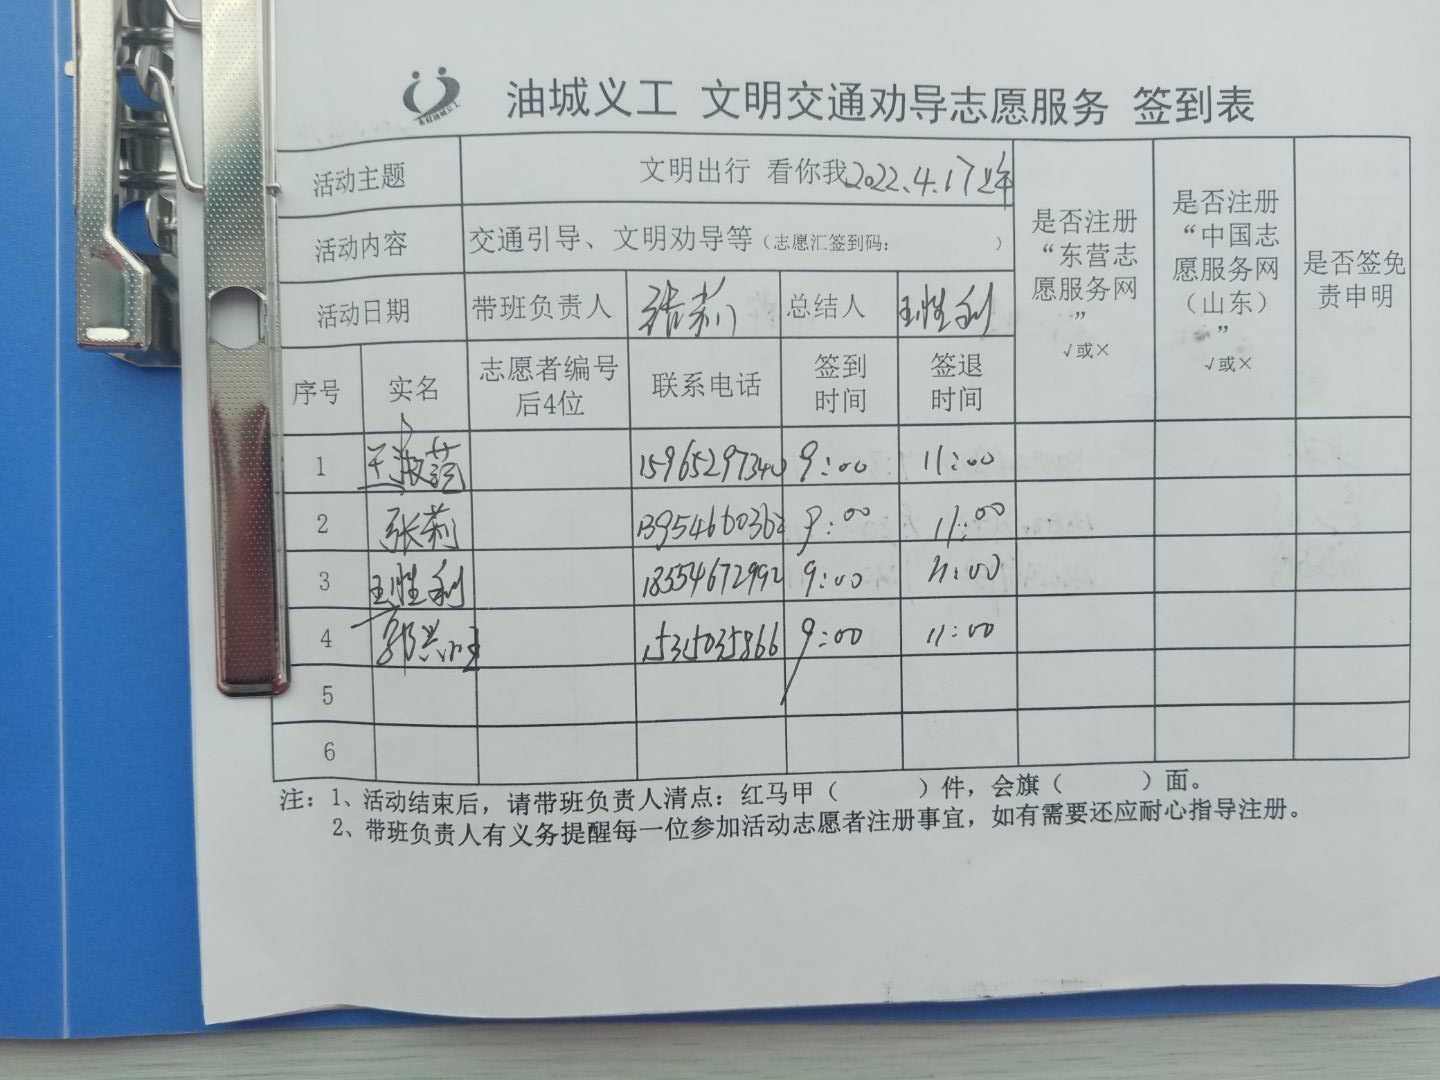 油城义工 文明交通劝导志愿服务 签到表
活动主题 文明出行 看你我 2022.4.17上午
是否注册“东营志愿服务网” √或×
是否注册“中国志愿服务网（山东）” √或×
是否签免责申明
活动内容 交通引导、文明劝导等（志愿汇签到码： ）
活动日期 带班负责人 张莉 总结人 王胜利
序号 实名 志愿者编号后4位 联系电话 签到时间 签退时间
1 王淑 9:00 11:00
2 张莉 13954660362 9:00 11:00
3 王胜利 18554672992 9:00 11:00
4 郭兴 15315035866 9:00 11:00
5
6
注：1、活动结束后，请带班负责人清点：红马甲（ ）件，会旗（ ）面。
2、带班负责人有义务提醒每一位参加活动志愿者注册事宜，如有需要还应耐心指导注册。